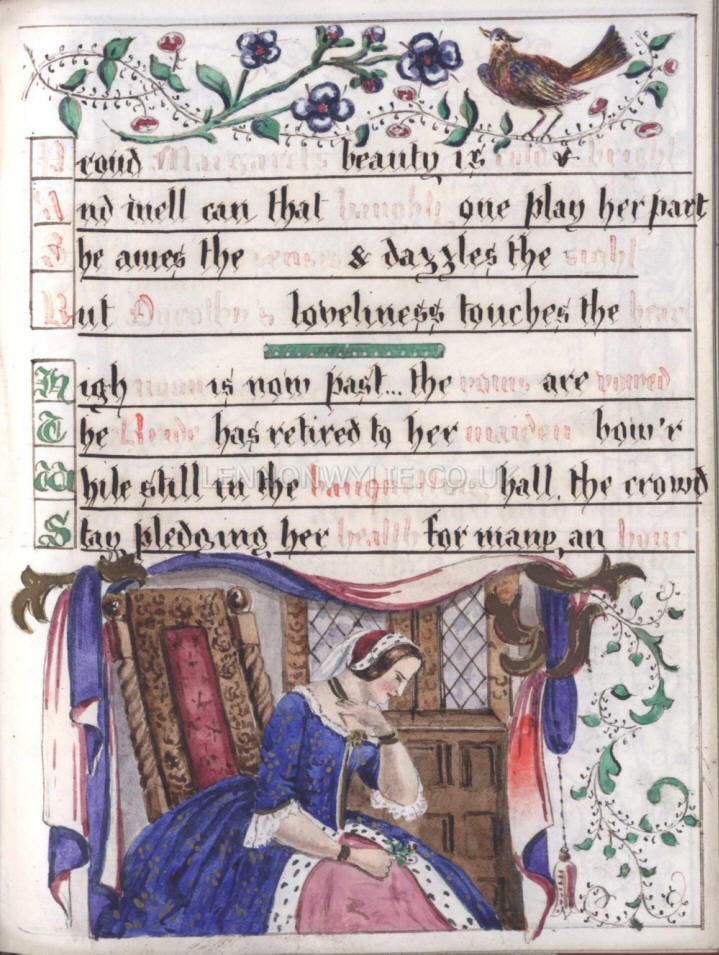 Proud Margaret's beauty is cold & bright
And well can that haughty one play her part
She awes the senses & dazzles the sight
But Dorothy's loveliness touches the heart
High noon is now past... the vows are vowed
The Bride has retired to her maiden bow'r
While still in the banquetting hall, the crowd
Stay pledging her health for many an hour
LENNONWYLIE.CO.UK